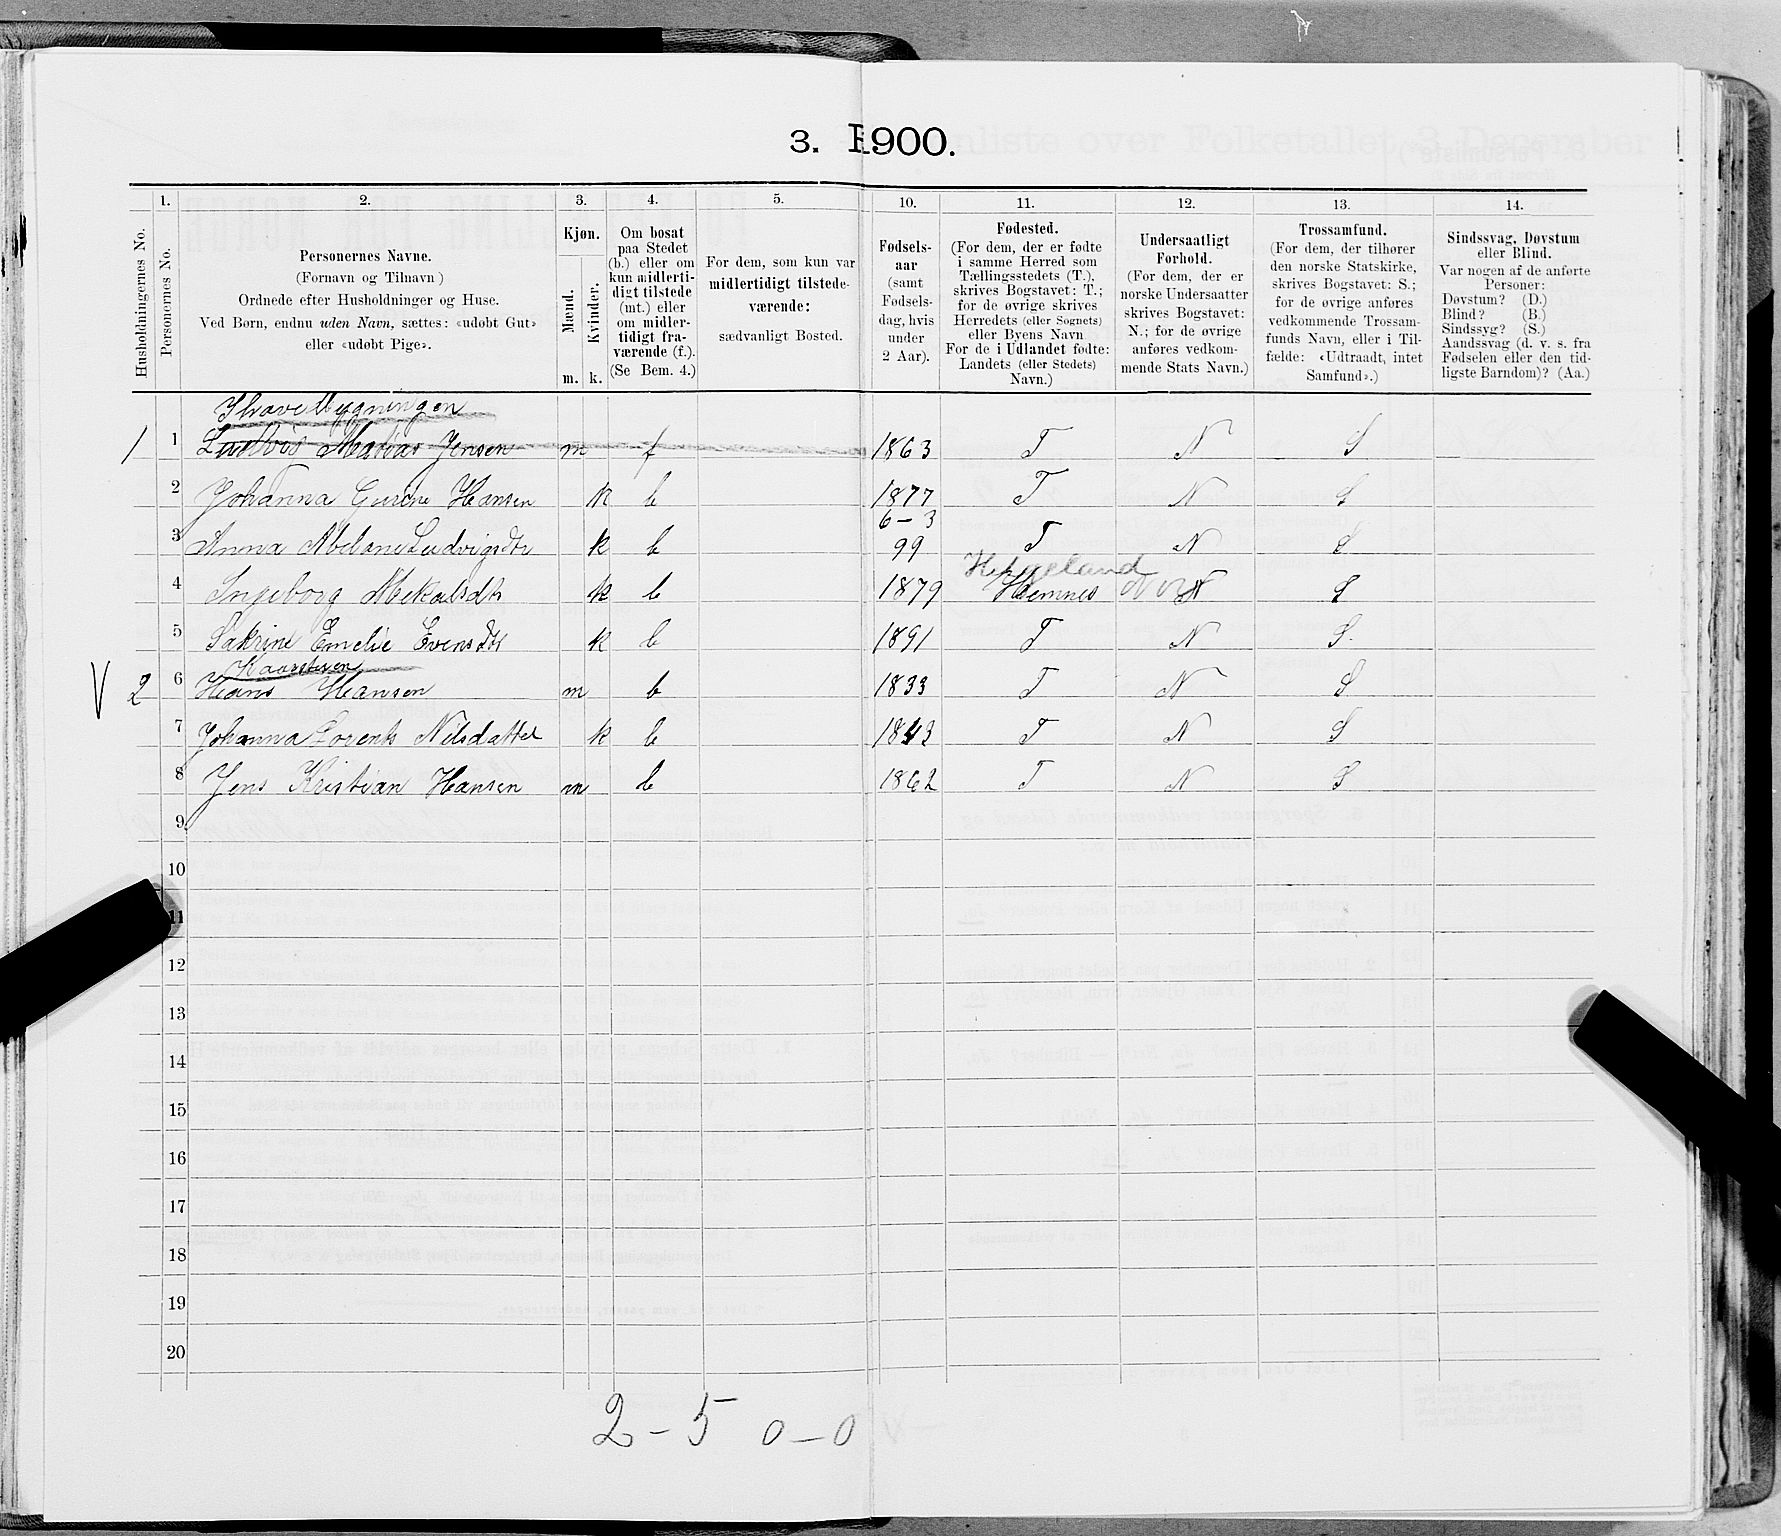 3. 1900.
1. 2. 3. 4. 5. 10. 11. 12. 13. 14.
Husholdningernes No.
Personernes No.
Personernes Navne.
(Fornavn og Tilnavn)
Ordnede efter Husholdninger og Huse.
Ved Børn, endnu uden Navn, sættes: «udøbt Gut»
eller «udøbt Pige».
Kjøn.
Mænd.
Kvinder.
m. k.
Om bosat
paa Stedet
(b.) eller om
kun midlerti-
digt tilstede
(mt.) eller
om midler-
tidigt fra-
værende (f.).
(Se Bem. 4.)
For dem, som kun var
midlertidigt tilstede-
værende:
sædvanligt Bosted.
Fødsels-
aar
(samt
Fødsels-
dag, hvis
under
2 Aar).
Fødested.
(For dem, der er fødte
i samme Herred som
Tællingsstedets (T.),
skrives Bogstavet: T.;
for de øvrige skrives
Herredets (eller Sognets)
eller Byens Navn
For de i Udlandet fødte:
Landets (eller Stedets)
Navn.)
Undersaatligt
Forhold.
(For dem, der er
norske Undersaatter
skrives Bogstavet:
N.; for de øvrige
anføres vedkom-
mende Stats Navn.)
Trossamfund.
(For dem, der tilhører
den norske Statskirke,
skrives Bogstavet: S.;
for de øvrige anføres
vedkommende Trossam-
funds Navn, eller i Til-
fælde: «Udtraadt, intet
Samfund».)
Sindssvag, Døvstum
eller Blind.
Var nogen af de anførte
Personer:
Døvstum? (D.)
Blind? (B.)
Sindssyg? (S.)
Aandssvag (d. v. s. fra
Fødselen eller den tid-
ligste Barndom)? (Aa.)
1 1 Ludvig Matias Jensen m f 1863 T N S
2 Johanna Gurine Hansen k b 1877 T N S
6-3
3 Anna Abelone Ludvigsdtr k b 99 T N S
Helgeland
4 Ingeborg Mekalsdtr k b 1879 Hemnes N S
5 Sakrine Emelie Evensdtr k b 1891 T N S.
V 2 6 Hans Hansen m b 1833 T N S
7 Johanna Lorents Nilsdatter k b 1843 T N S
8 Jens Kristian Hansen m b 1862 T N S
9
10
11
12
13
14
15
16
17
18
19
20
2-5 0-0